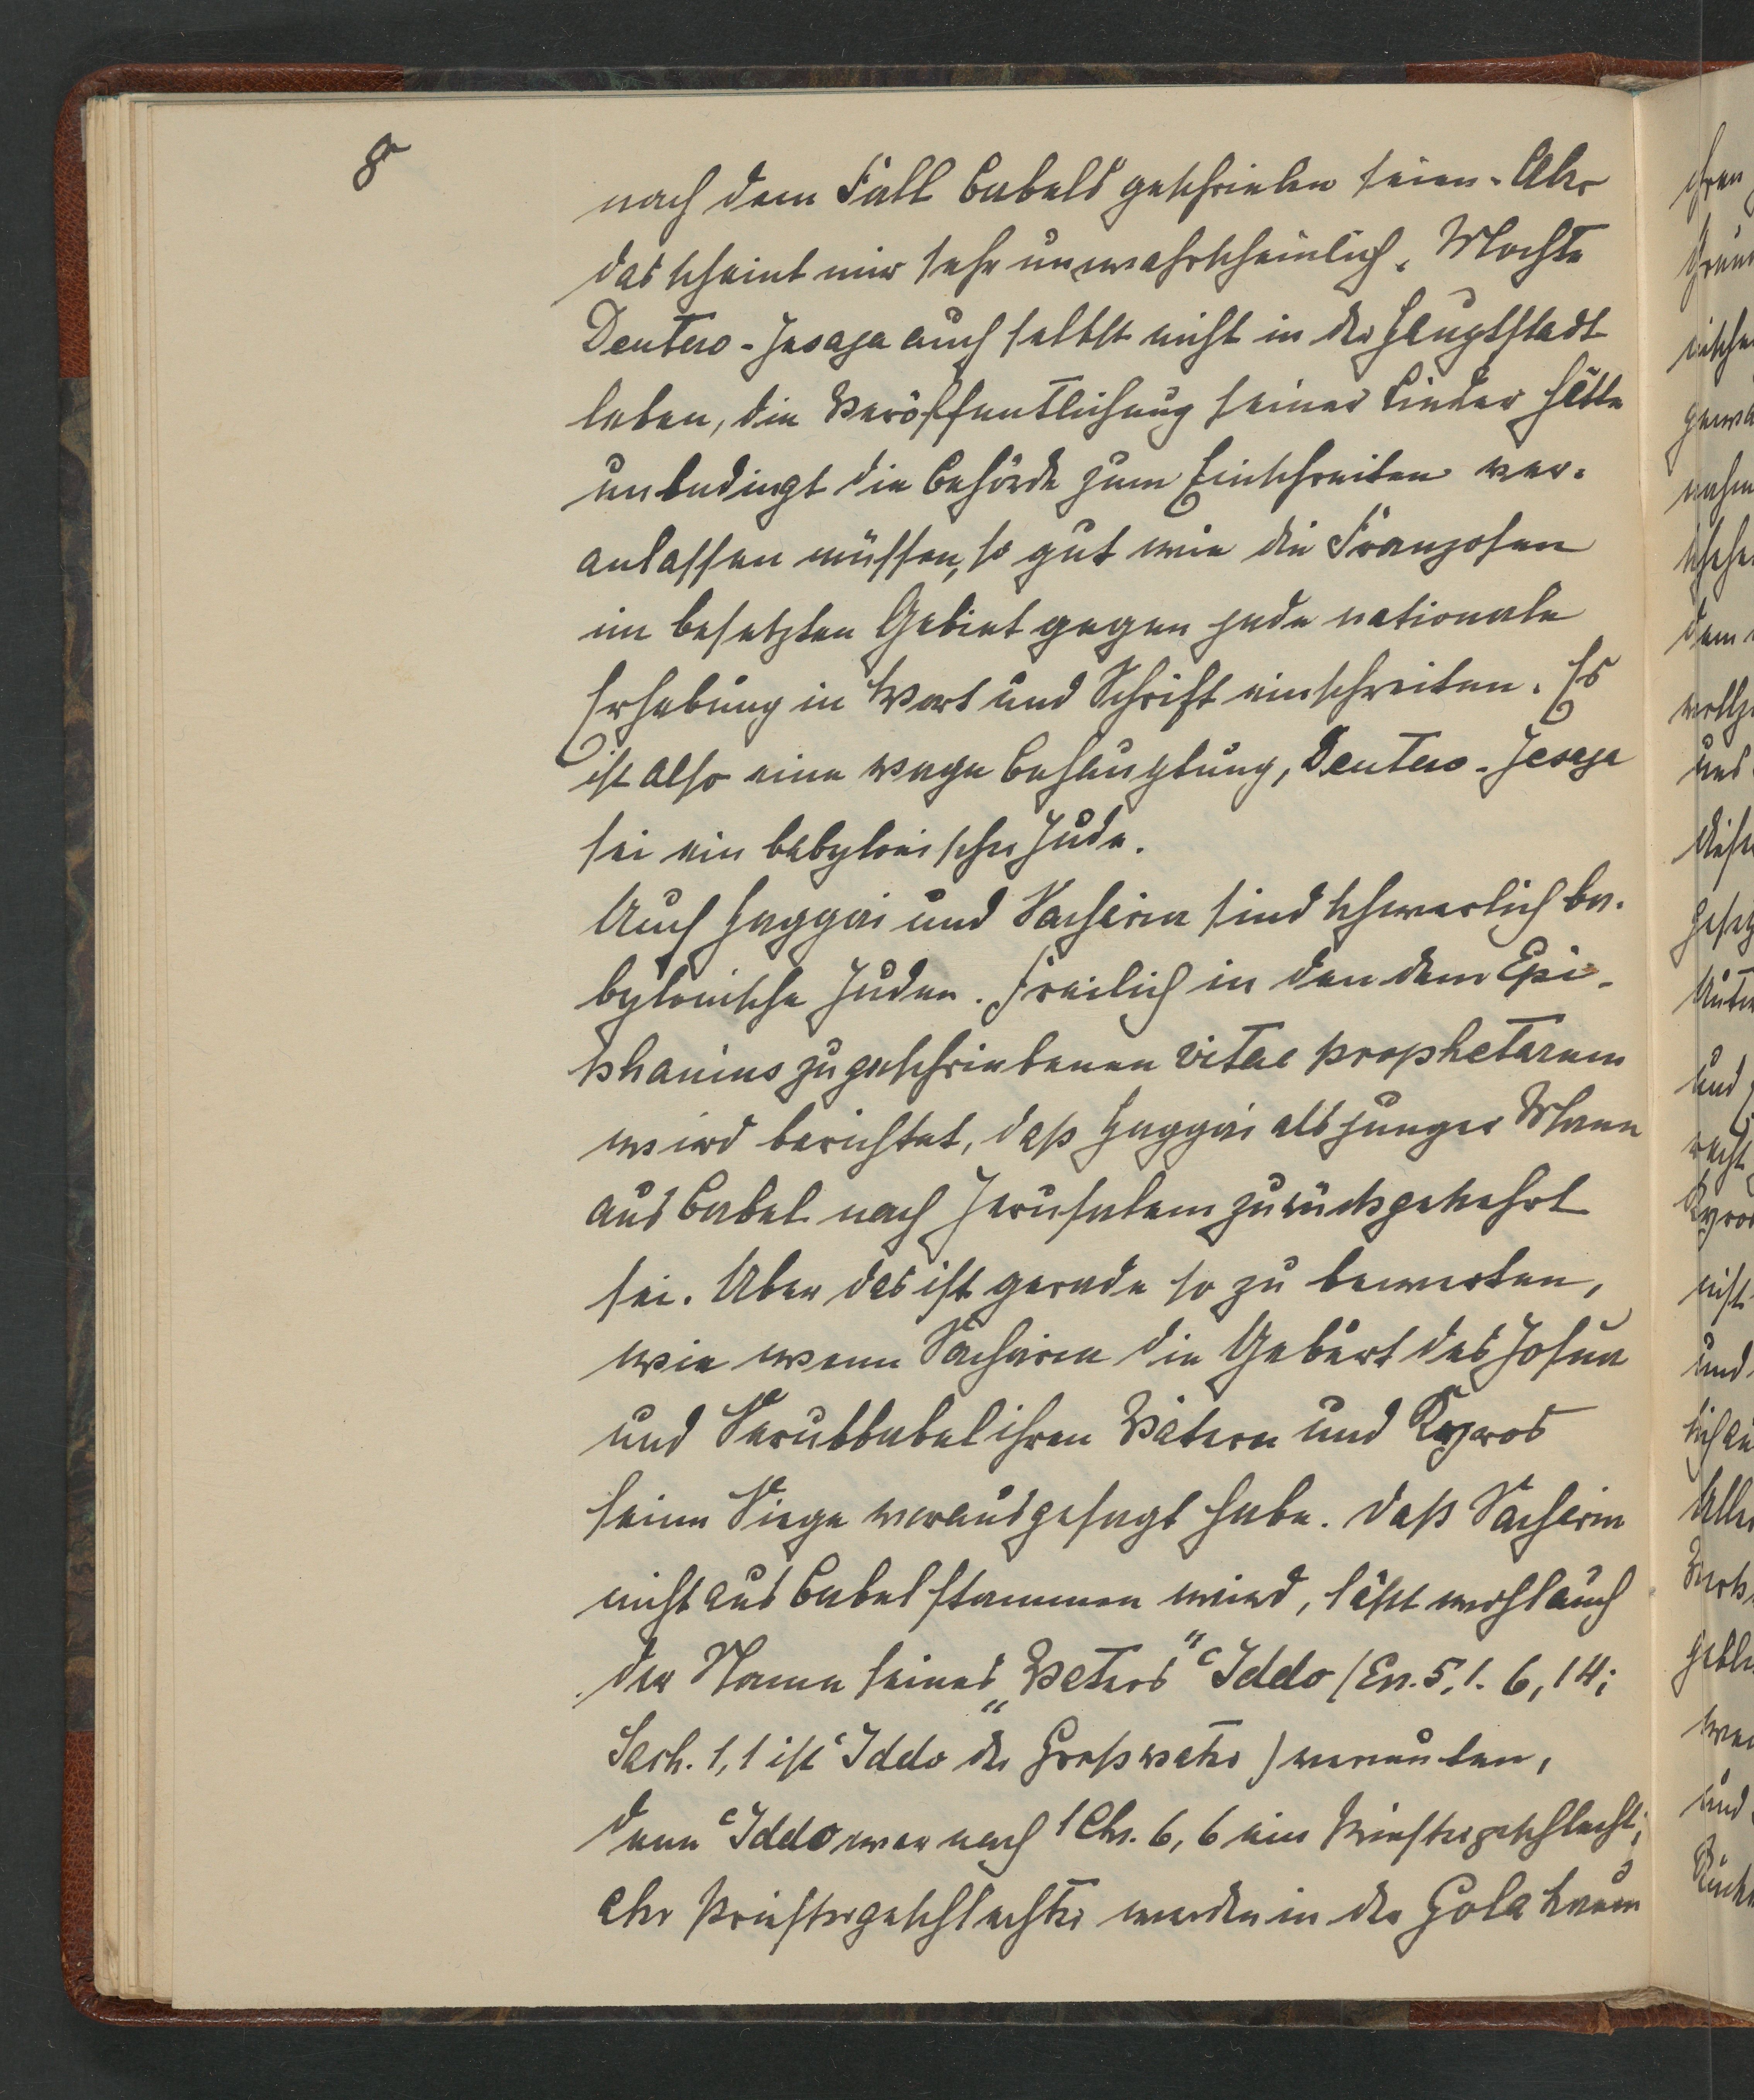 8
nach dem Fall Babels geschrieben seien. Aber
das scheint mir sehr unwahrscheinlich. Mochte
Deutero-Jesaja auch selbst nicht in der Hauptstadt
leben, die Veröffentlichung seiner Lieder hätte
unbedingt die Behörde zum Einschreiten ver-
anlassen müssen, so gut wie die Franzosen
im besetzten Gebiet gegen jede nationale
Erhebung in Wort und Schrift einschreiten. Es
ist also eine vage Behauptung, Deutero-Jesaja
sei ein babylonischer Jude.
Auch Haggai und Sacharia sind schwerlich ba-
bylonische Juden. Freilich in den dem Epi-
phanius zugeschriebenen vitae prophetarum
wird berichtet, daß Haggai als junger Mann
aus Babel nach Jerusalem zurückgekehrt
sei. Aber das ist gerade so zu bewerten,
wie wenn Sacharia die Geburt des Josua
und Serubbabel ihren Vätern und Kyros
seine Siege vorausgesagt habe. Daß Sacharia
nicht aus Babel stammen wird, läßt wohl auch
der Name seines „Vaters“ ʿIddo (Esr. 5,1. 6,14;
Sach. 1,1 ist ʿIddo der Großvater) vermuten,
denn ʿIddo war nach 1 Chr. 6,6 ein Priestergeschlecht;
aber Priestergeschlechter werden in der Gola kaum